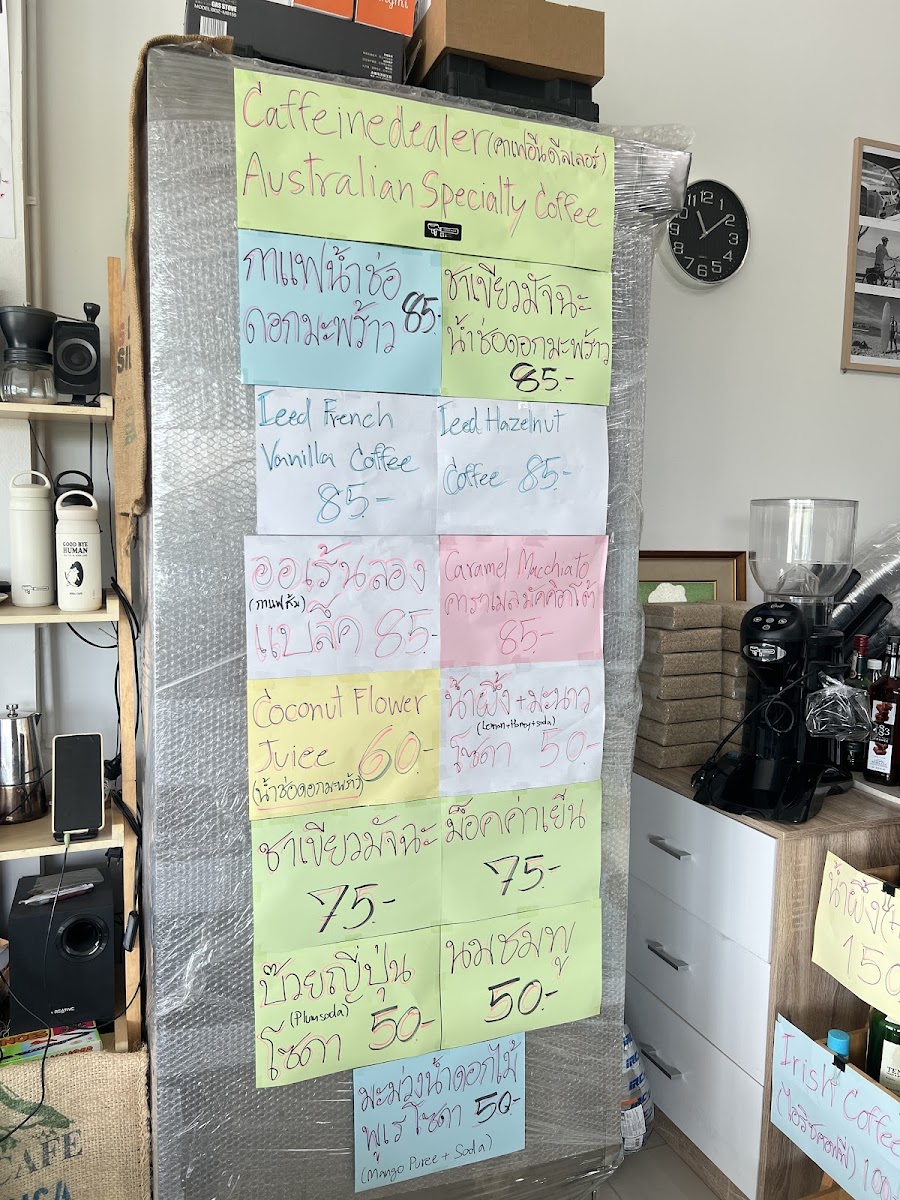 GAS STOVE
Caffeinedealer (คาเฟอีนดีลเลอร์)
Australian Specialty Coffee
กาแฟน้ำช่อ
ดอกมะพร้าว 85.-
ชาเขียวมัจฉะ
น้ำช่อดอกมะพร้าว
85.-
Iced French
Vanilla Coffee
85.-
Iced Hazelnut
Coffee 85.-
ออเร้นลอง
(กาแฟส้ม)
แบล็ค 85.-
Caramel Macchiato
คาราเมลมัคคิอาโต้
85.-
Coconut Flower
Juice 60.-
(น้ำช่อดอกมะพร้าว)
น้ำผึ้ง+มะนาว
(Lemon+Honey+soda)
โซดา 50.-
ชาเขียวมัจฉะ
75.-
ม็อคค่าเย็น
75.-
บ๊วยญี่ปุ่น
(Plumsoda)
โซดา 50.-
นมชมพู
50.-
มะม่วงน้ำดอกไม้
พูเร โซดา 50.-
(Mango Puree + Soda)
GOOD BYE
HUMAN
น้ำผึ้ง
150
Irish Coffee
100.-
CAFE
12 1 2 3 4 5 6 7 8 9 10 11